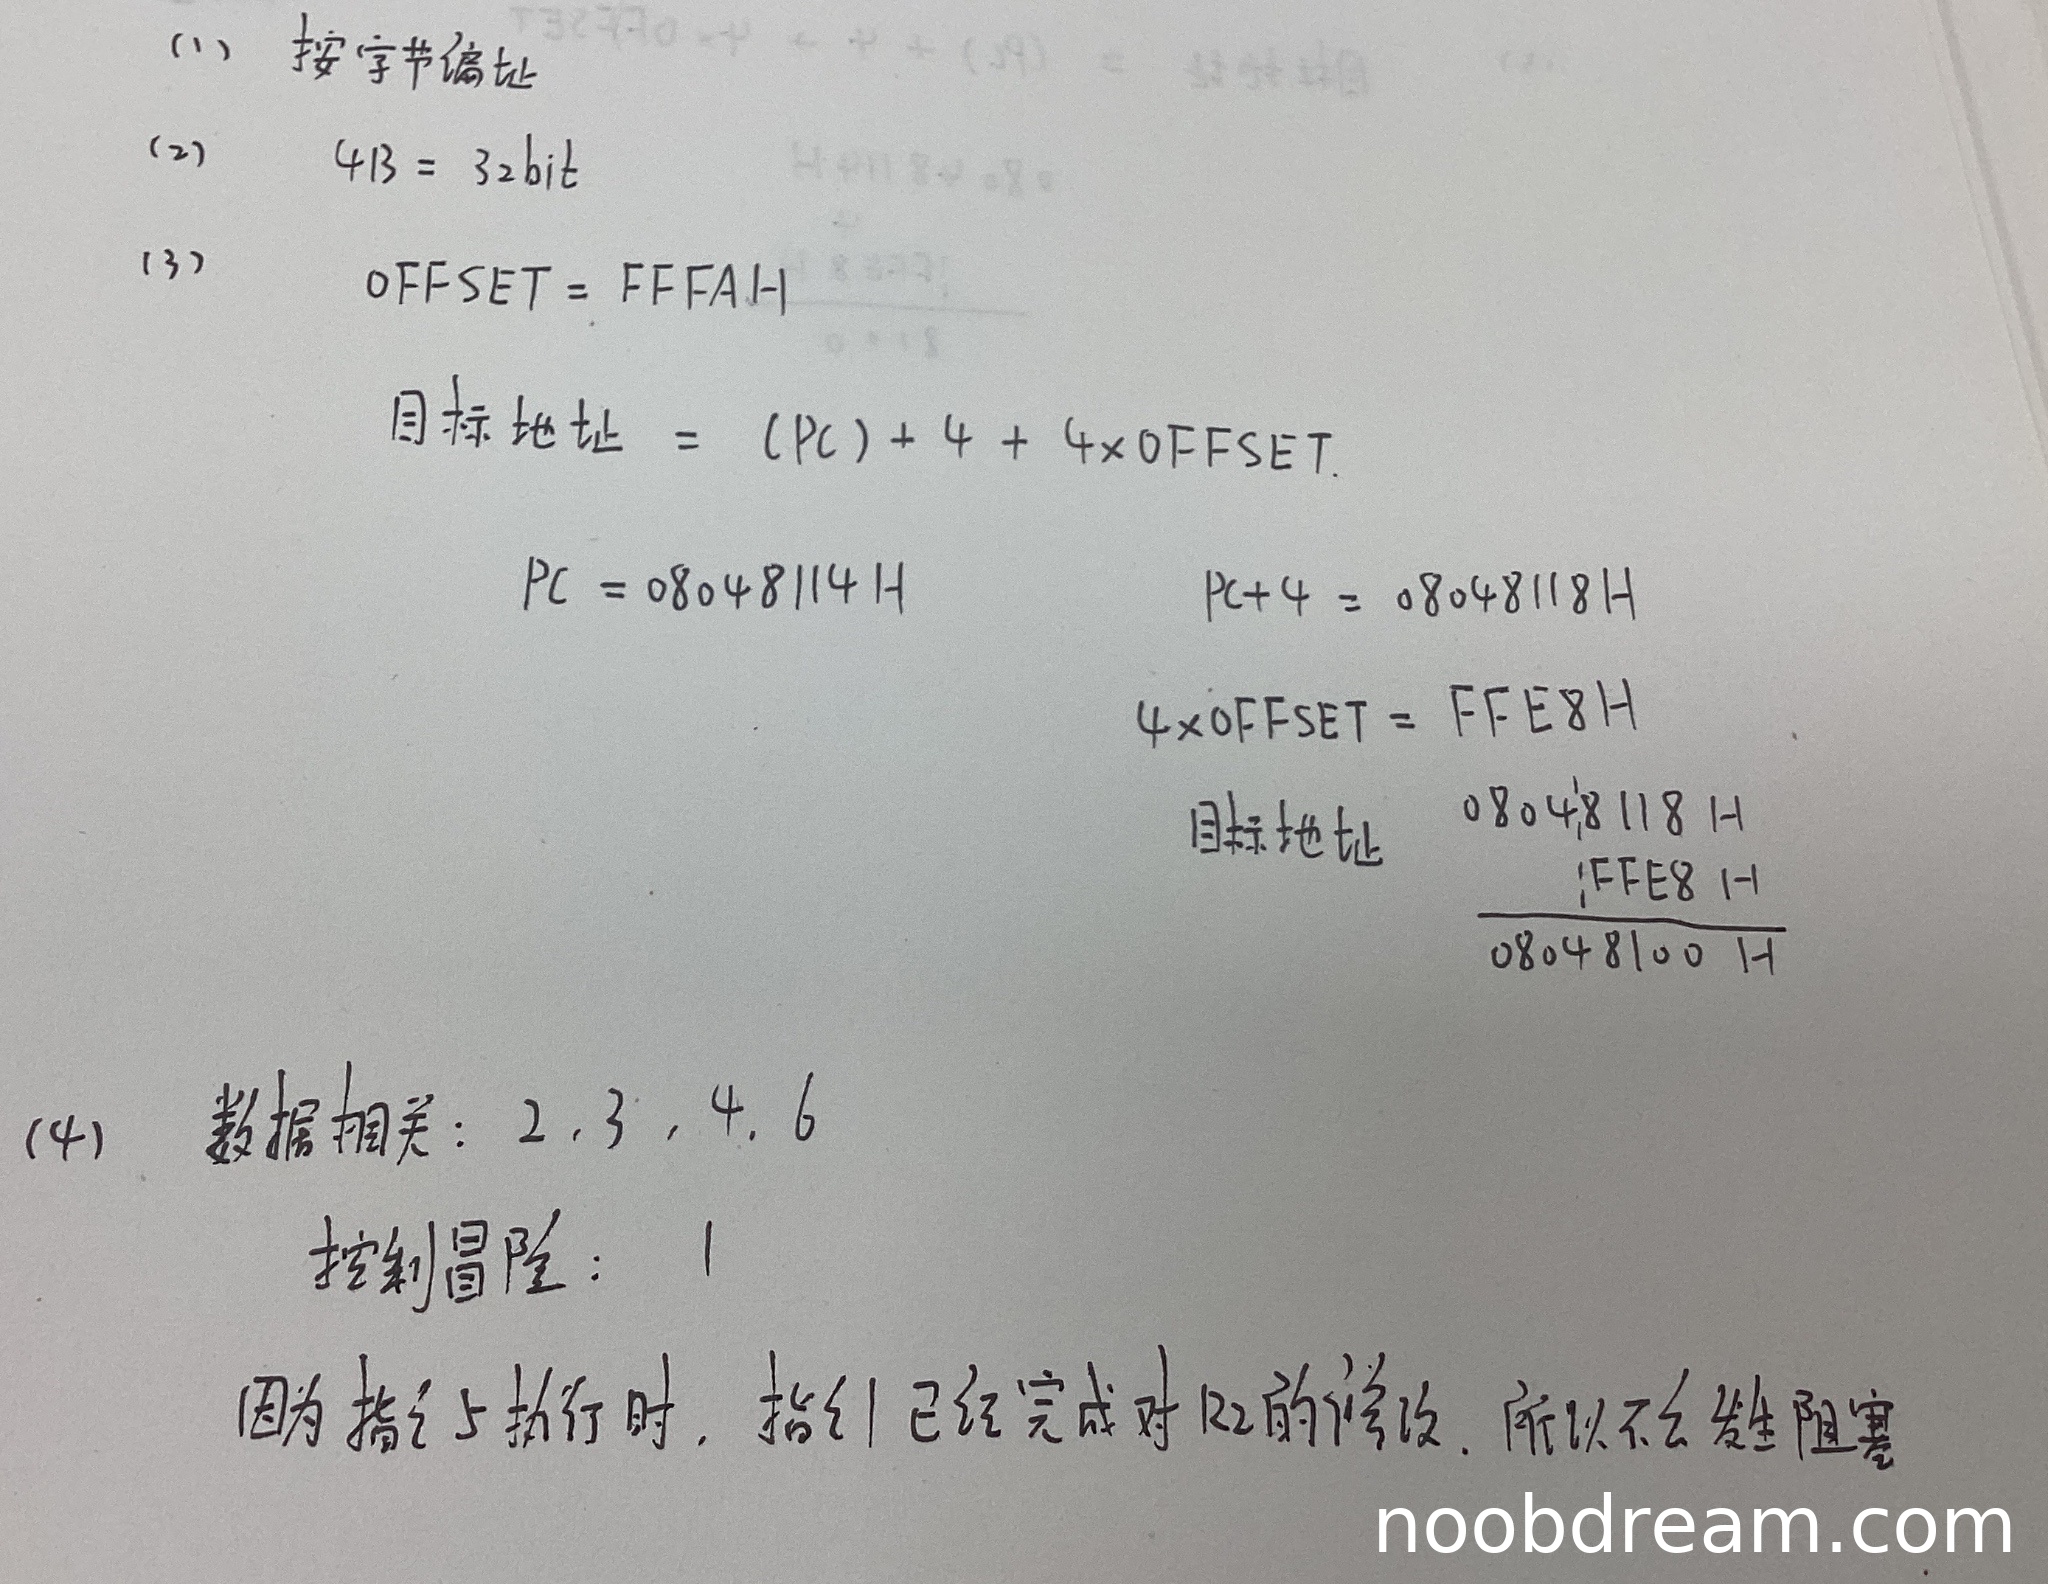 (1) 按字节编址
(2) 4B = 32bit
(3) OFFSET = FFFAH
目标地址 = (PC) + 4 + 4×OFFSET.
PC = 08048114H
PC+4 = 08048118H
4×OFFSET = FFE8H
目标地址 08048118H
FFE8H
08048100H
(4) 数据相关: 2, 3, 4, 6
控制冒险: 1
因为指令5执行时, 指令1已经完成对R2的修改. 所以不会发生阻塞
noobdream.com